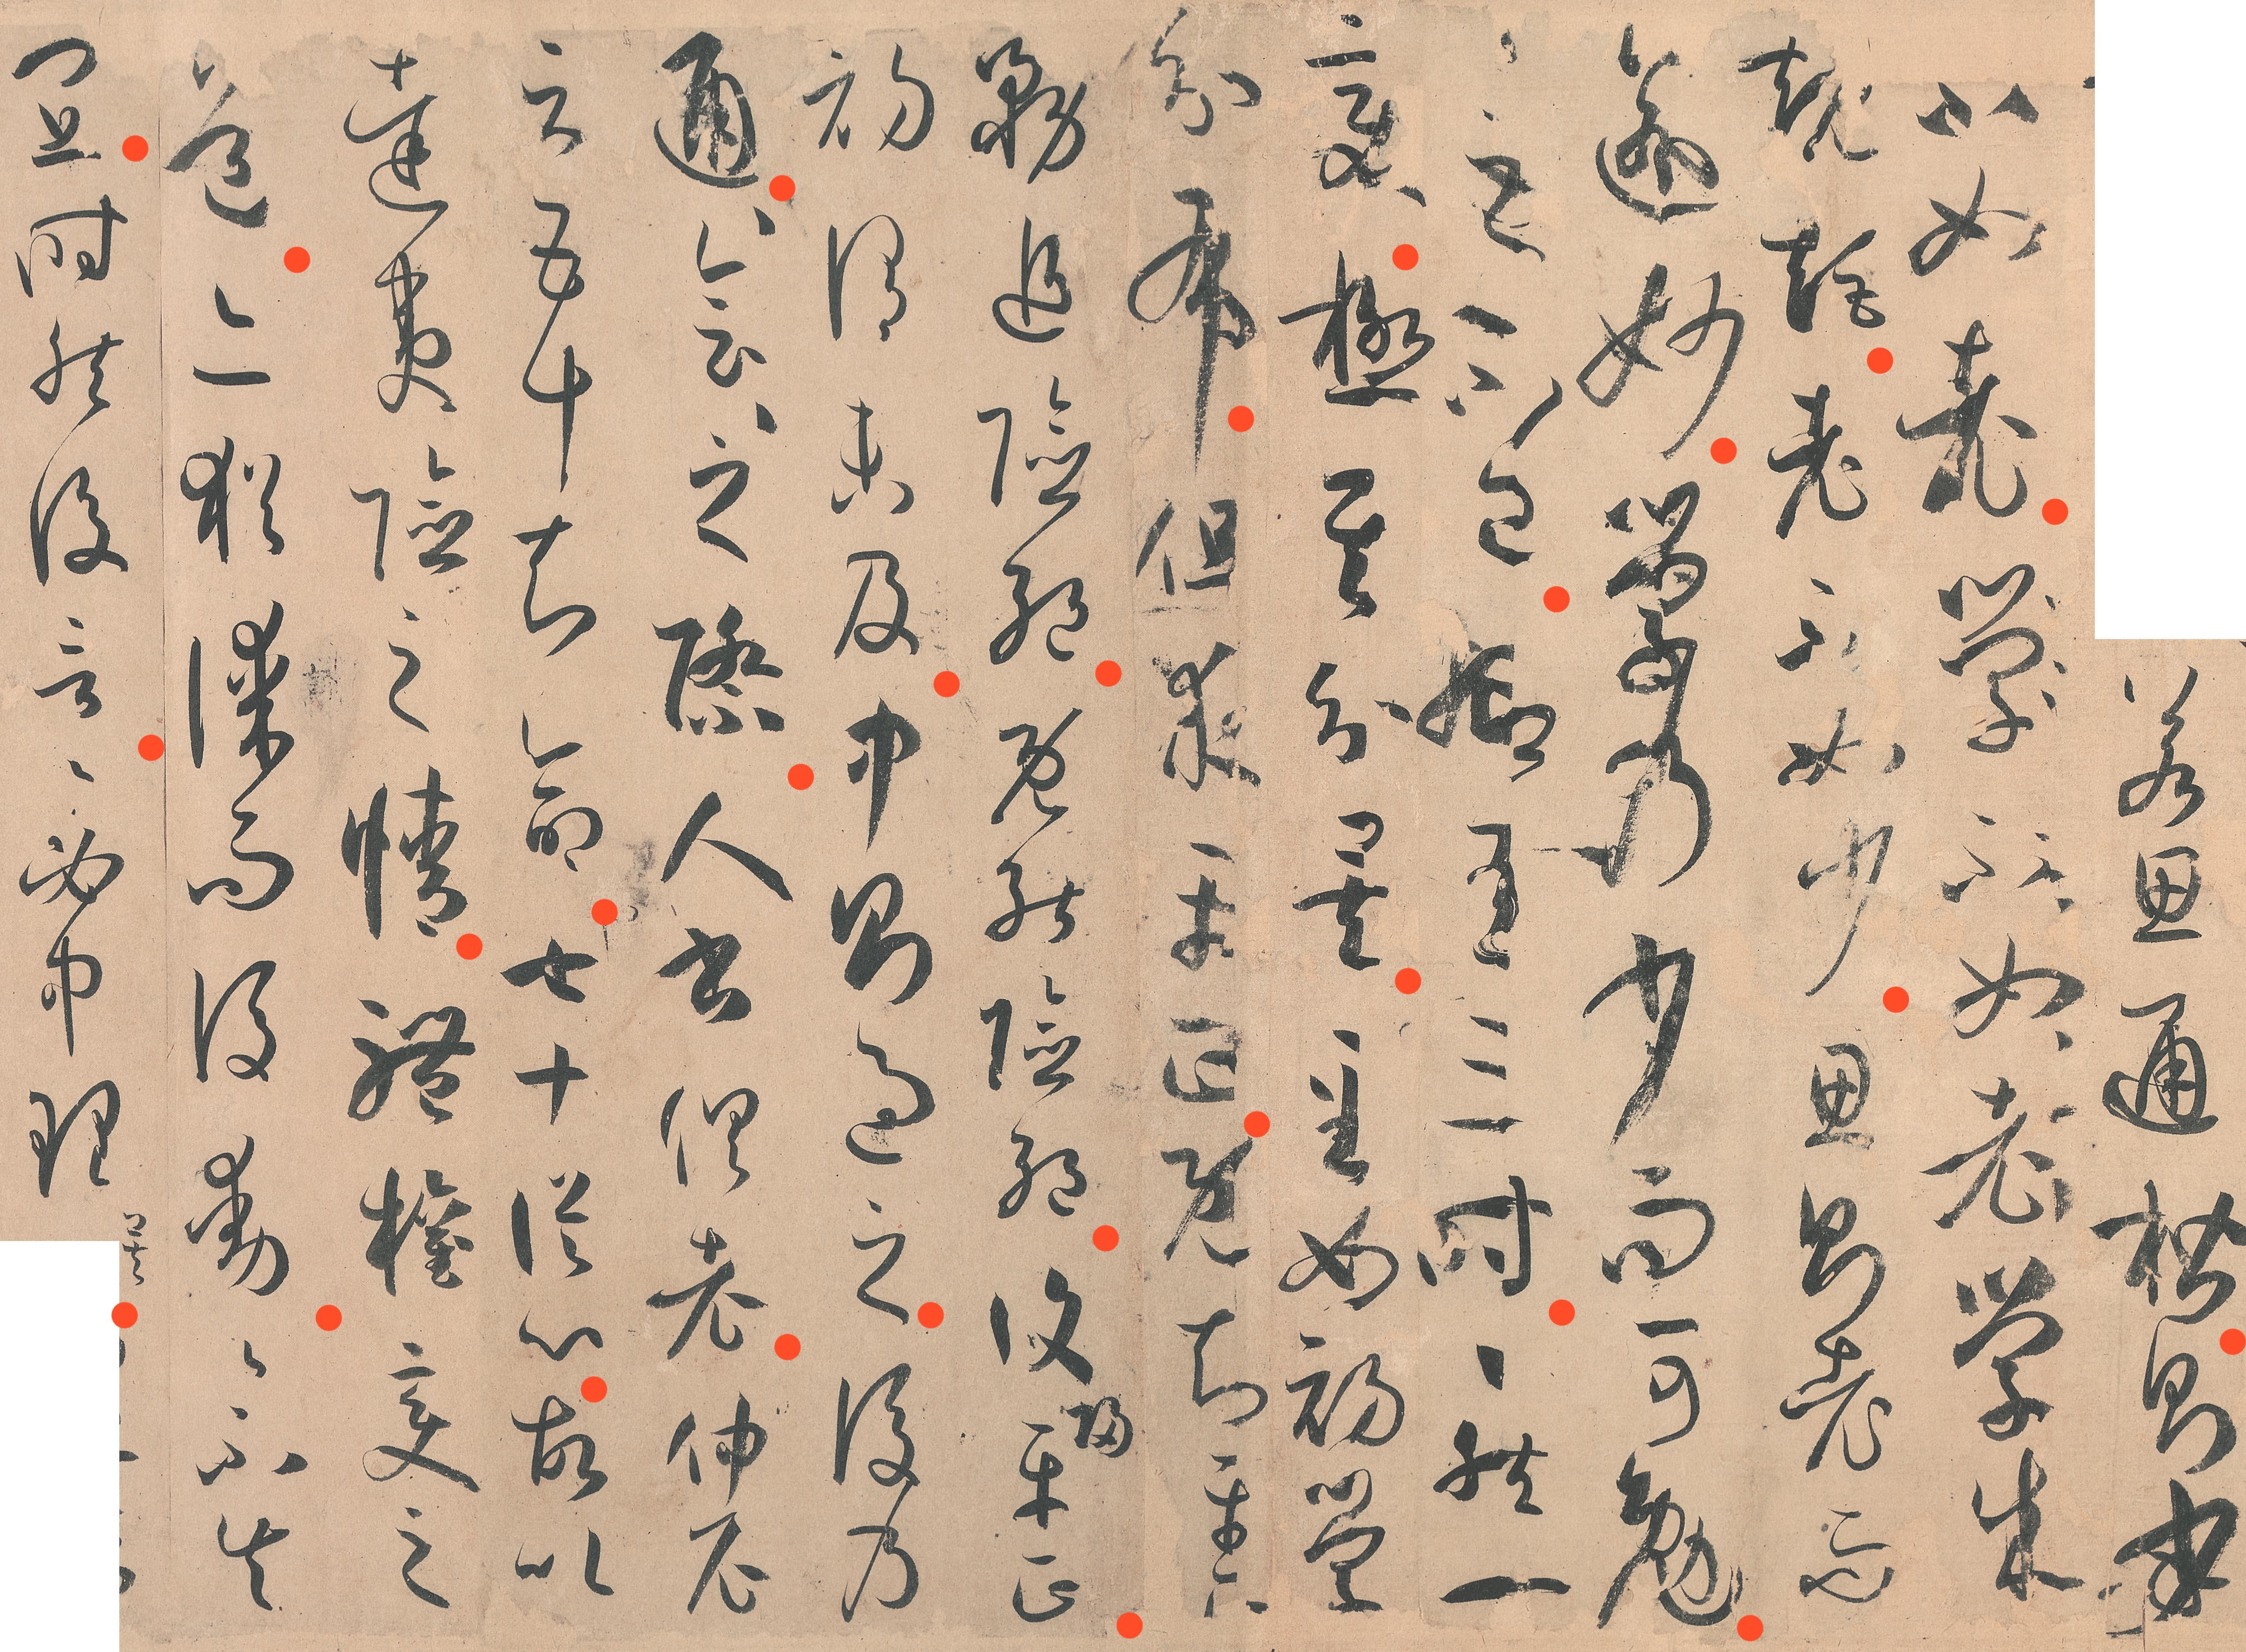 若思通楷則少
不如老學不如老學成
規矩老不如少思則老而
逾妙學乃少而可勉
々之不已抑有三時々然一
變極其分矣至如初學
分布但求平正既知平正
務追險絕既能險絕復歸平正
初謂未及中則過之後乃
通々會々之際人書俱老仲尼
云五十知命七十從心故以
達夷險之情體權變之
道亦猶謀而後動々不失
宜時然後言々必中理矣